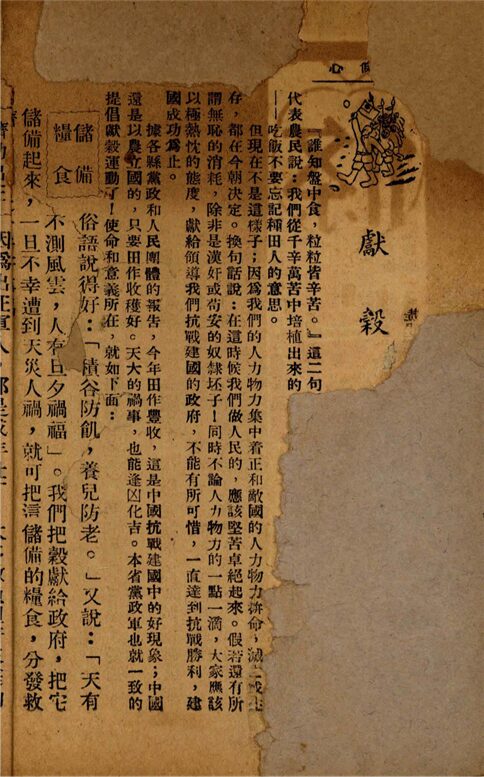 獻穀
『誰知盤中食，粒粒皆辛苦。』這二句
代表農民說：我們從千辛萬苦中培植出來的
——吃飯不要忘記種田人的意思。
但現在不是這樣子；因為我們的人力物力集中着正和敵國的人力物力拚命，滅亡或生
存，都在今朝決定。換句話說：在這時候我們做人民的，應該堅苦卓絕起來。假若還有所
謂無恥的消耗，除非是漢奸或苟安的奴隸坯子！同時不論人力物力的一點一滴，大家應該
以極熱忱的態度，獻給領導我們抗戰建國的政府，不能有所可惜，一直達到抗戰勝利，建
國成功爲止。
據各縣黨政和人民團體的報告，今年田作豐收，這是中國抗戰建國中的好現象；中國
還是以農立國的，只要田作收穫好。天大的禍事，也能逢凶化吉。本省黨政軍也就一致的
提倡獻穀運動了！使命和意義所在，就如下面：
儲備糧食
俗語說得好：「積谷防飢，養兒防老。」又說：「天有
不測風雲，人有旦夕禍福」。我們把穀獻給政府，把它
儲備起來，一旦不幸遭到天災人禍，就可把這儲備的糧食，分發救